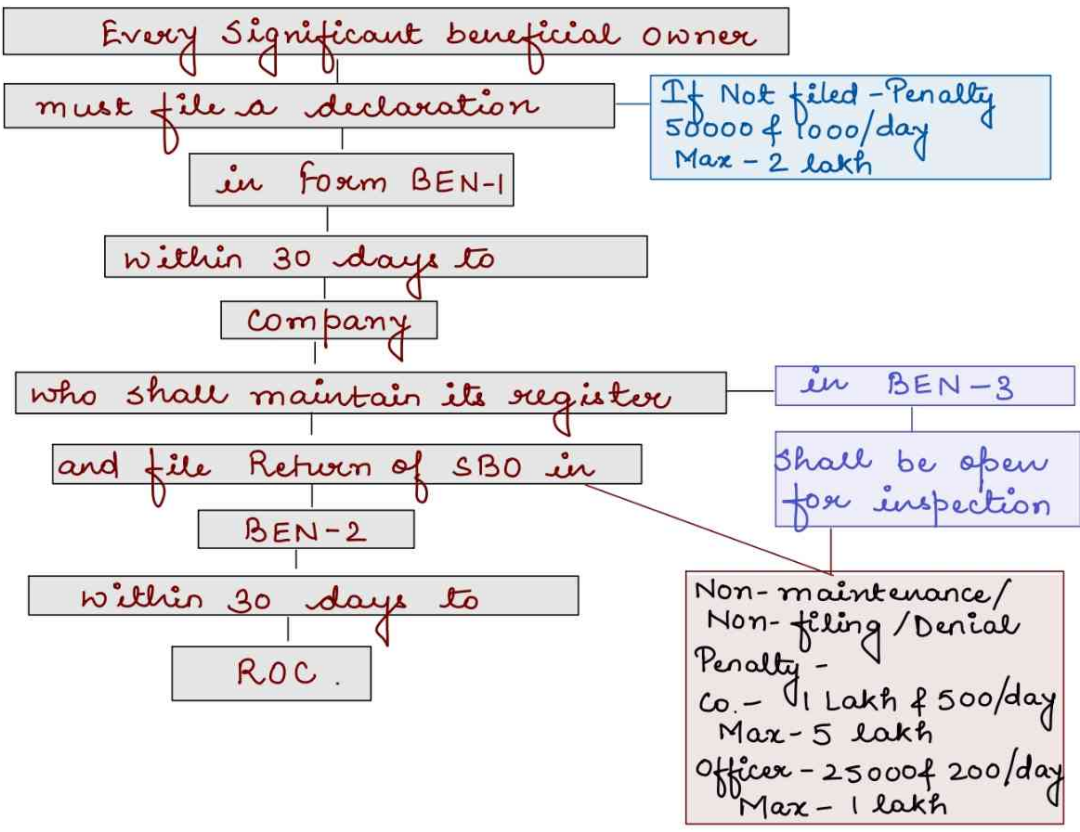 Every Significant beneficial owner
must file a declaration
If Not filed - Penalty
50000 & 1000/day
Max - 2 lakh
in Form BEN-1
within 30 days to
Company
who shall maintain its register
in BEN-3
and file Return of SBO in
shall be open
for inspection
BEN-2
within 30 days to
ROC.
Non-maintenance/
Non-filing/Denial
Penalty -
Co. - 1 Lakh & 500/day
Max - 5 lakh
Officer - 25000 & 200/day
Max - 1 lakh